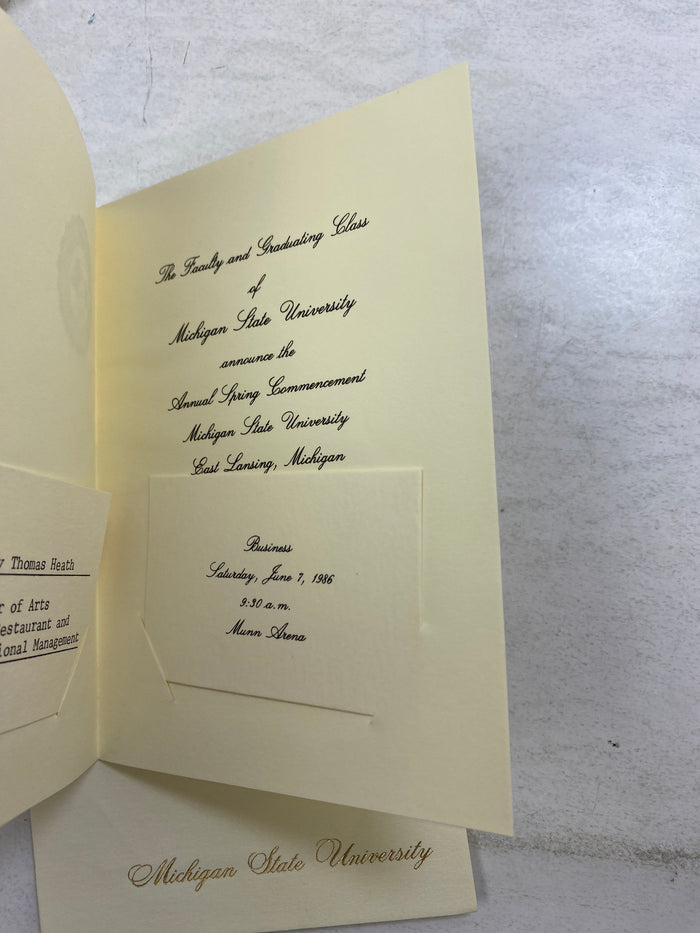 Thomas Heath
of Arts
and
Management
The Faculty and Graduating Class
of
Michigan State University
announce the
Annual Spring Commencement
Michigan State University
East Lansing, Michigan
Business
Saturday, June 7, 1986
9:30 a.m.
Munn Arena
Michigan State University